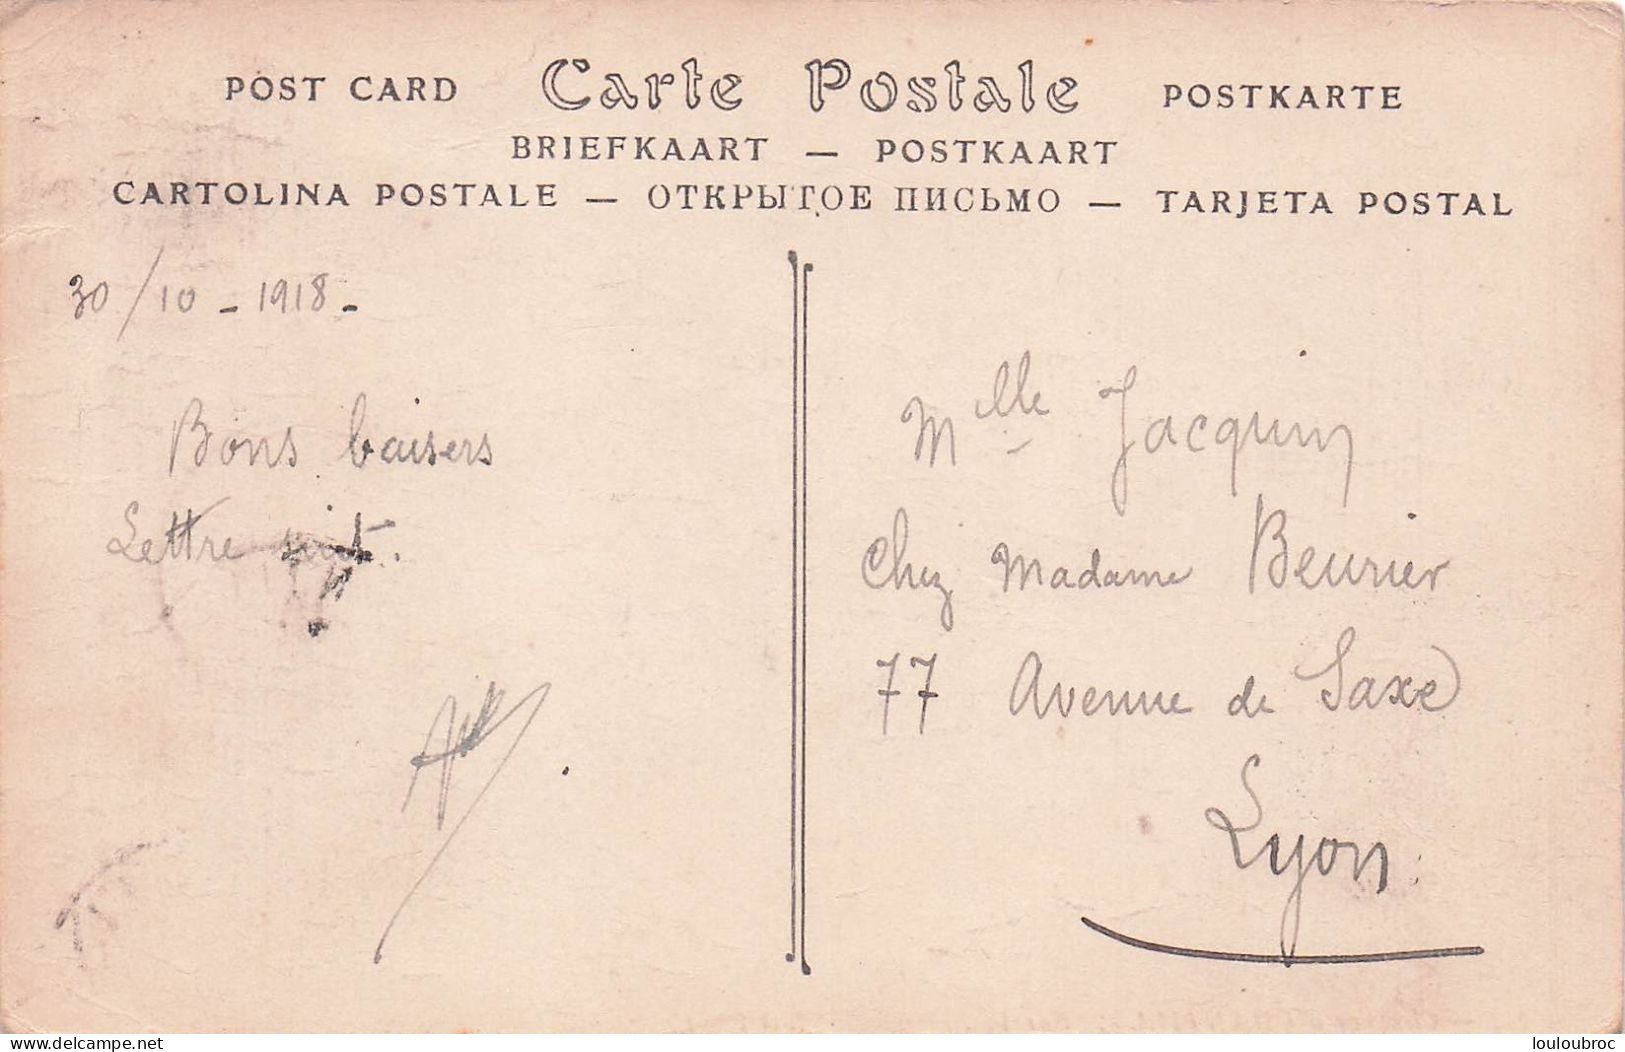 POST CARD Carte Postale POSTKARTE
BRIEFKAART — POSTKAART
CARTOLINA POSTALE — ОТКРЫТОЕ ПИСЬМО — TARJETA POSTAL
30/10 - 1918 -
Bons baisers
Lettre suit.
Mlle Jacquin
Chez Madame Beurier
77 Avenue de Saxe
Lyon
delcampe.net
louloubroc